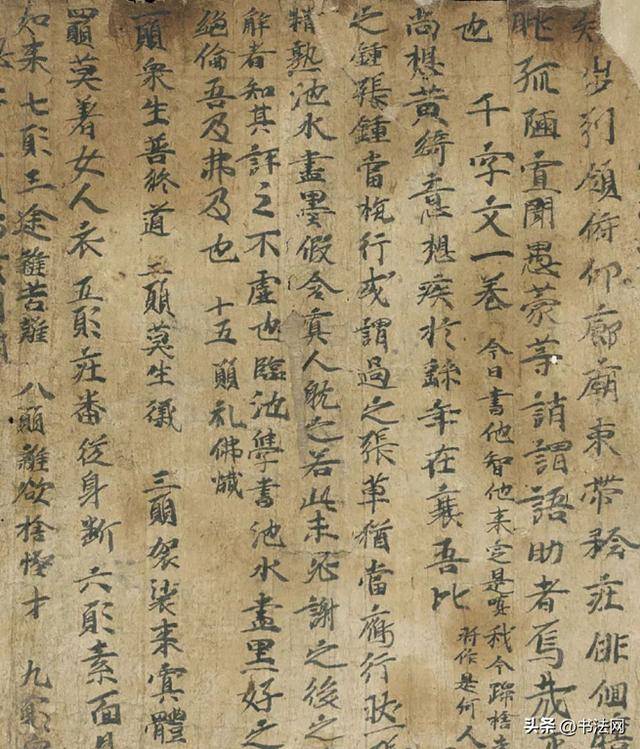 步列領俯仰廊廟束帶矜庄俳佪
眺孤陋寡聞愚蒙等誚謂語助者焉哉
也 千字文一卷 今日書他智他來定是嗔我今
將作是何人
尚想黃綺意想疾於繇年在襄吾比
之鍾張鍾當抗行或謂過之張草猶當鴈行
精熟池水盡墨假令寡人躭之若此未必謝之後之
解者知其評之不虛也臨池學書池水盡黑好之
絕倫吾及弗及也 十五願礼佛懺
一願衆生善終道 二願莫生儀 三願袈裟來實體
四願莫著女人衣 五願莊番從身斷 六願素面
如來 七願三途離苦難 八願離欲捨慳才 九願
头条 @书法网